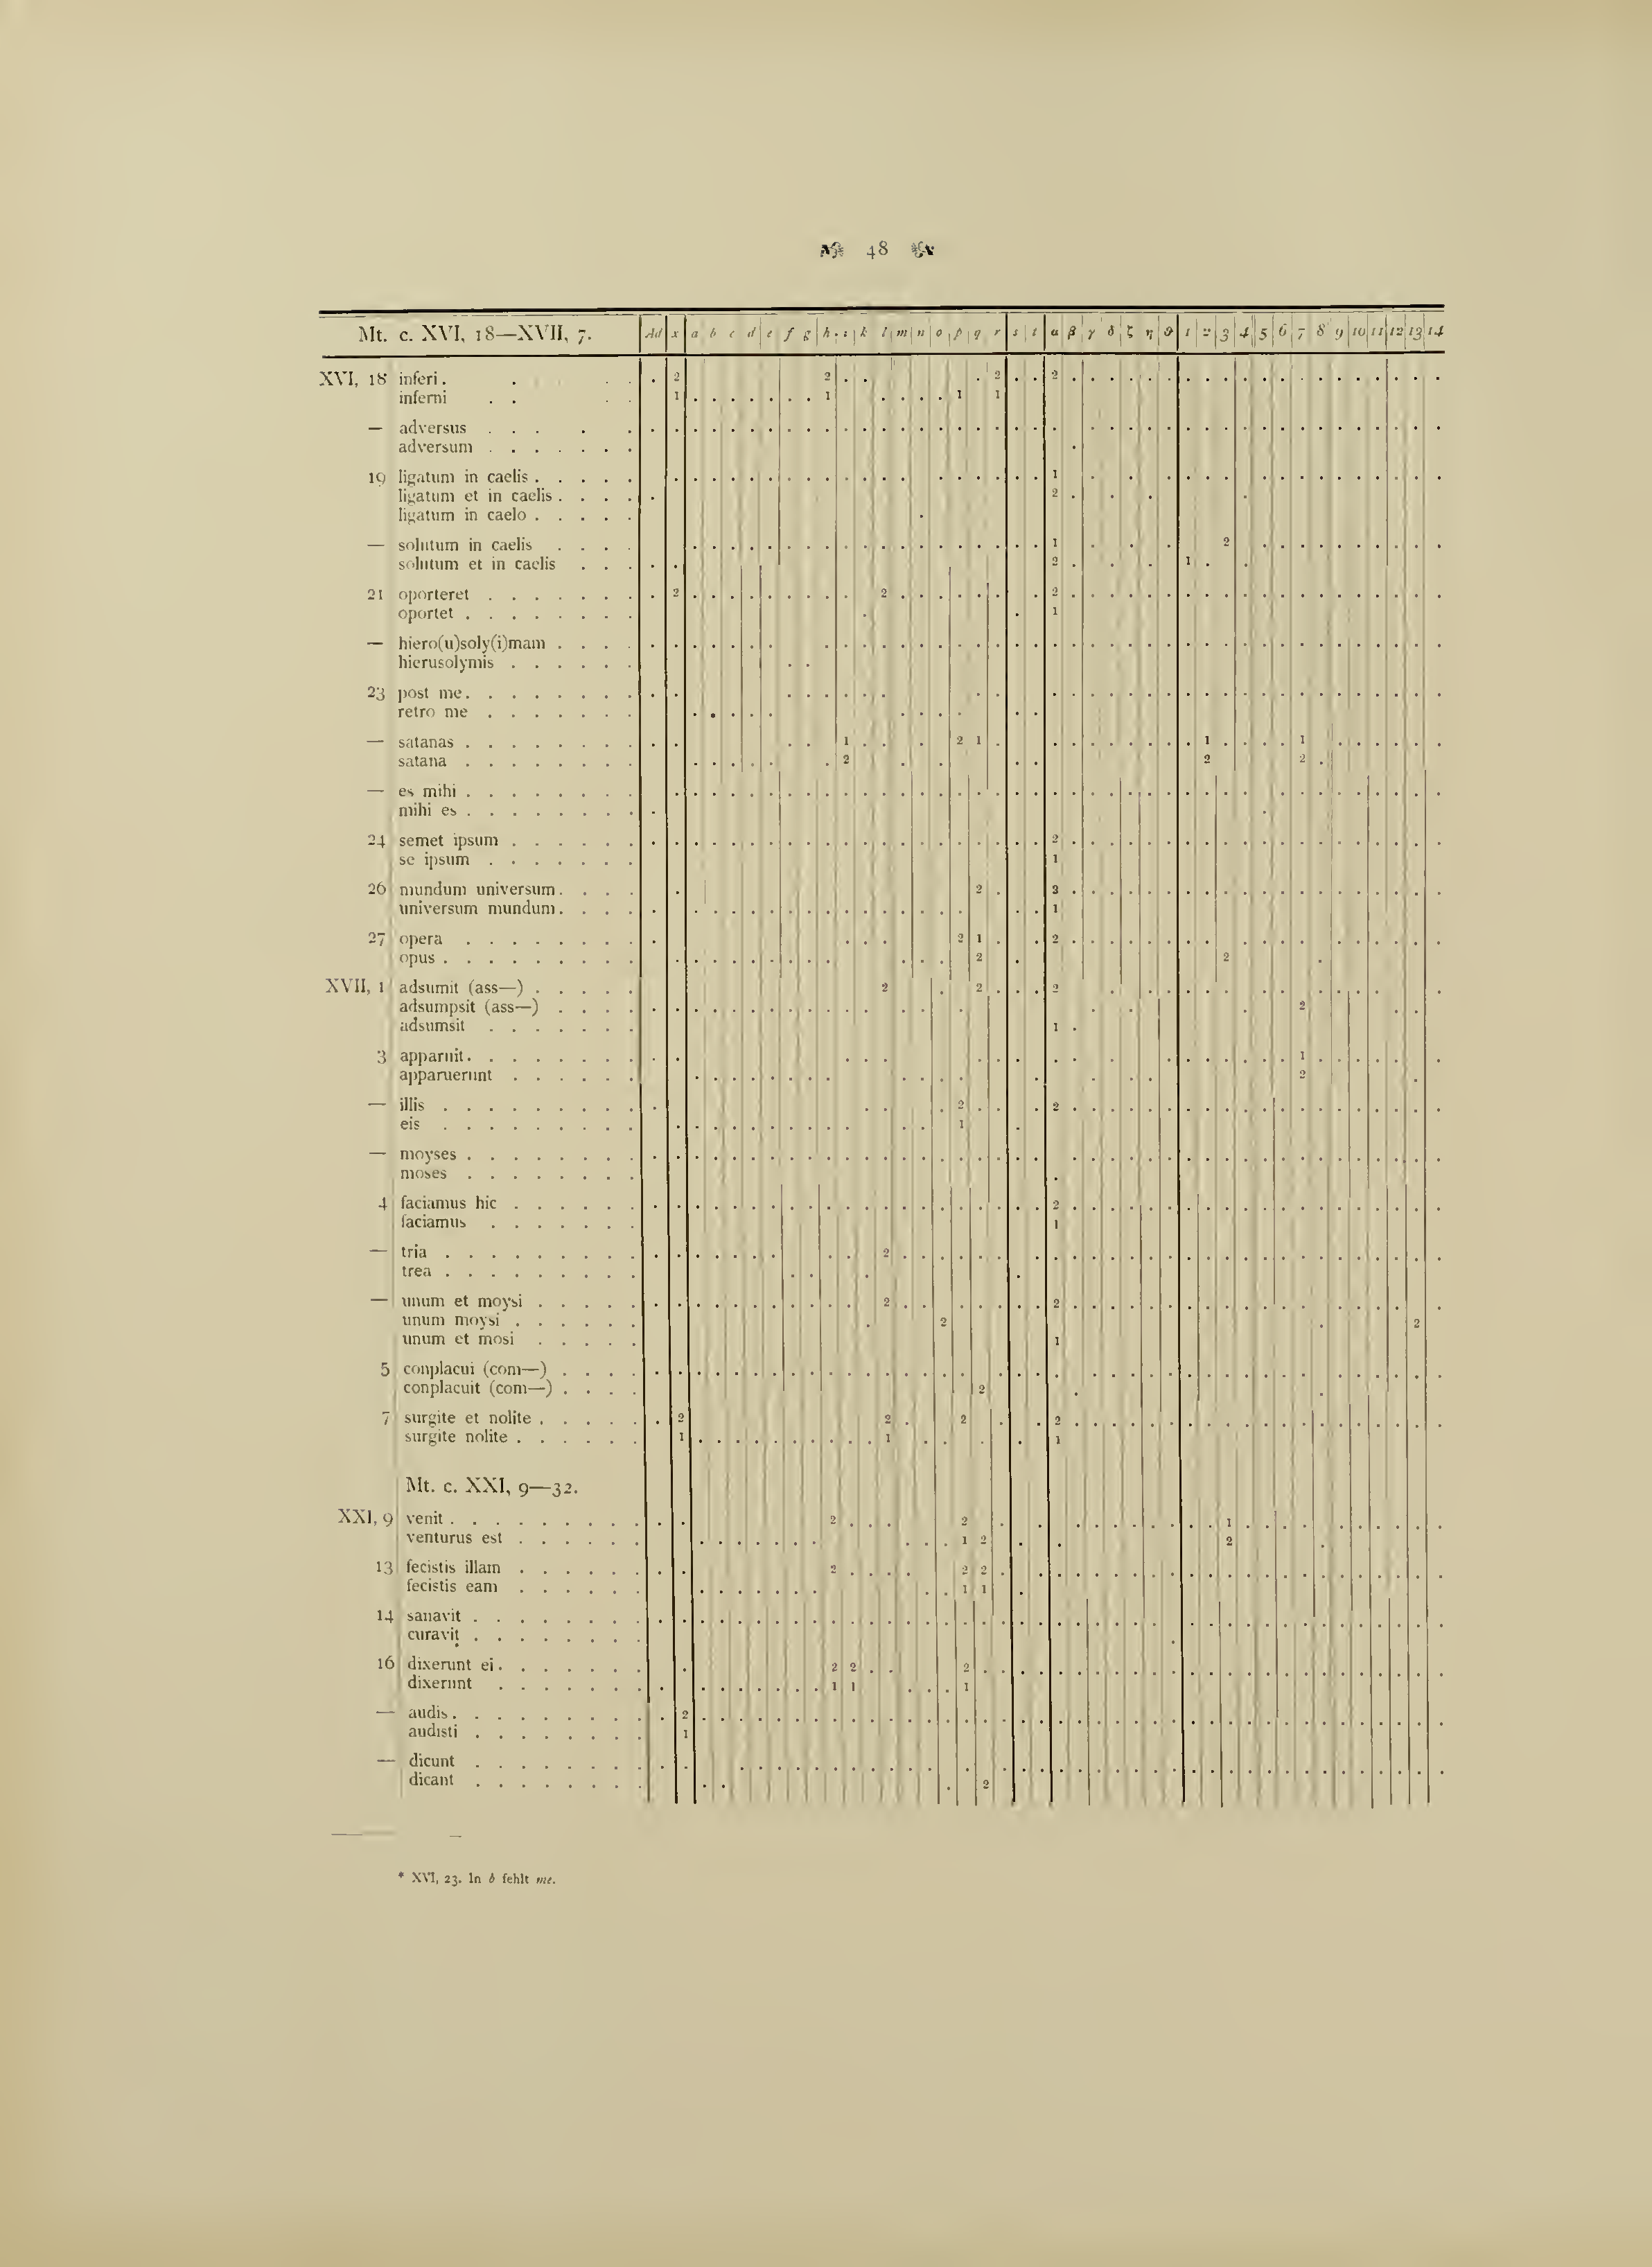 48
Mt. c. XVI, 18—XVII, 7. Ad x a b c d e f g h i k l m n o p q r s t α β γ δ ζ η θ 1 2 3 4 5 6 7 8 9 10 11 12 13 14
XVI, 18 inferi . 2 2 2 2
inferni 1 1 1 1
— adversus
adversum
19 ligatum in caelis . 1
ligatum et in caelis . 2
ligatum in caelo .
— solutum in caelis 1 2
solutum et in caelis 2 1
21 oporteret 2 2 2
oportet . 1
— hiero(u)soly(i)mam .
hierusolymis .
23 post me .
retro me
— satanas . 1 2 1 1 1
satana . 2 2 2
— es mihi .
mihi es .
24 semet ipsum . 2
se ipsum 1
26 mundum universum . 2 3
universum mundum . 1
27 opera 2 1 2
opus . 2 2
XVII, 1 adsumit (ass—) . 2 2 2
adsumpsit (ass—) 2
adsumsit 1
3 apparuit . 1
apparuerunt 2
— illis 2 2
eis 1
— moyses .
moses
4 faciamus hic 2
faciamus 1
— tria 2
trea .
— unum et moysi . 2 2
unum moysi . 2 2
unum et mosi 1
5 conplacui (com—) .
conplacuit (com—) . 2
7 surgite et nolite . 2 2 2 2
surgite nolite . 1 1 1
Mt. c. XXI, 9—32.
XXI, 9 venit . 2 2 1
venturus est 1 2 2
13 fecistis illam 2 2 2
fecistis eam 1 1
14 sanavit .
curavit .
16 dixerunt ei . 2 2 2
dixerunt 1 1 1
— audis . 2
audisti . 1
— dicunt
dicant 2
* XVI, 23. In b fehlt me.